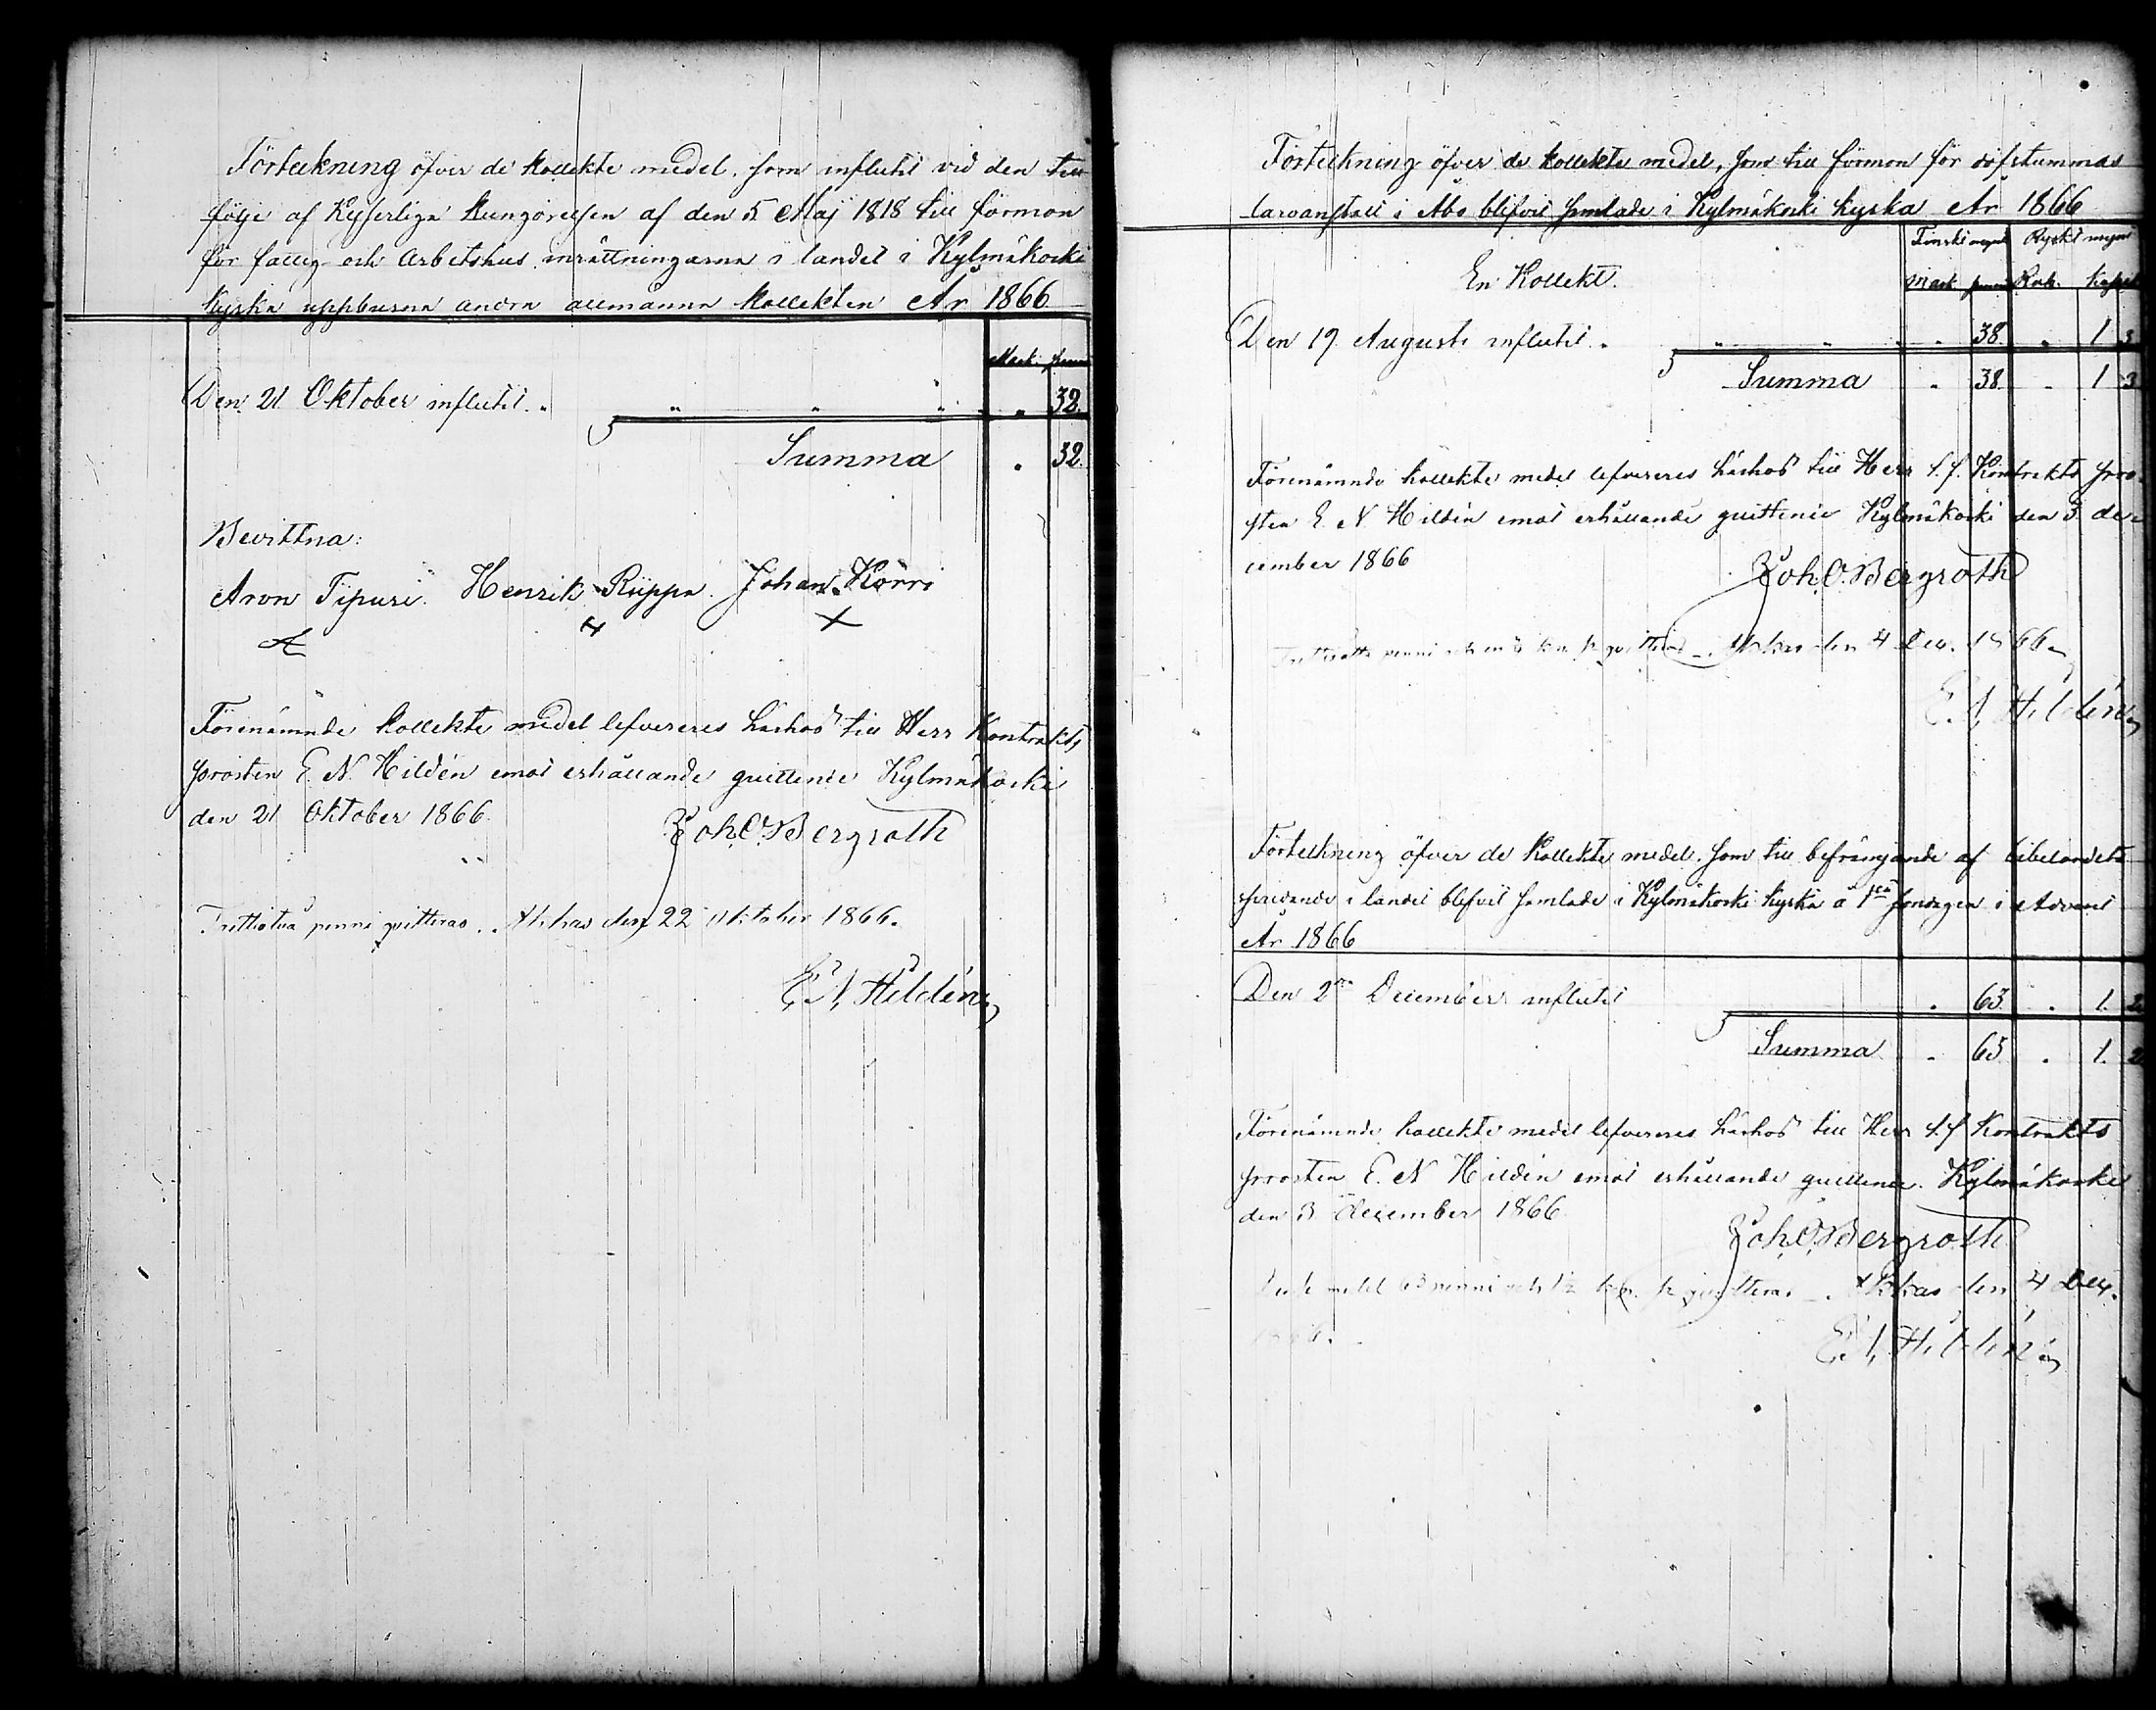 Förteckning öfver de kollekte medel, som influtit vid den till
följe af Kejserliga Kungörelsen af den 5 Maj 1818 till förmon
för fattig och Arbetshus inrättningarna i landet i Kylmäkoski
kyrka uppburna andra allmänna kollekten År 1866
Mark. penni
Den 21 Oktober influtit. " " " " " 32.
Summa " 32.
Bevittna:
Aron Tipuri. Henrik Riippa. Johan Körri
A X X
Förenämnde kollekte medel lefvereres härhos till Herr Kontrakts
prosten E. N. Hildén emot erhållande quittence Kylmäkoski
den 21 Oktober 1866.
Joh. O. Bergroth
Trettiotvå penni qvitteras. Akkas den 22 Oktober 1866.
E. N. Hildén
Förteckning öfver de kollekte medel, som till förmon för döfstummas
läroanstalt i Åbo blifvit samlade i Kylmäkoski kyrka År 1866
Finskt mynt Ryskt mynt
En Kollekt.
Mark penni Rub. Kopek
Den 19 Augusti influtit. " " " " 38. " 1 3
Summa " 38. " 1 3
Förenämnde kollekte medel lefvereres härhos till Herr t. f. Kontrakts pro-
sten E. N. Hildén emot erhållande quittence Kylmäkoski den 3 de-
cember 1866
Joh. O. Bergroth
Trettioåtta penni och en kop. sr qvitteras. Akkas den 4 Dec. 1866.
E. N. Hildén
Förteckning öfver de Kollekte medel, som till befrämjande af bibelordets
spridande i landet blifvit samlade i Kylmäkoski kyrka å 1sta söndagen i Advent
År 1866
Den 2dra December influtit " 63. " 1. 2
Summa " 63 " 1. 2
Förenämnde kollekte medel lefvereres härhos till Herr t. f. Kontrakts
prosten E. N. Hildén emot erhållande quittence. Kylmäkoski
den 3 december 1866
Joh. O. Bergroth
medel 63 penni och 1½ kop. sr qvitteras. Akkas den 4 Dec.
1866.
E. N. Hildén